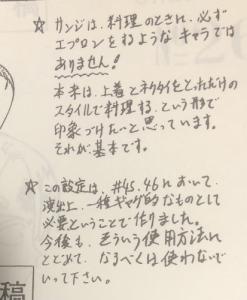 ☆ サンジは、料理のときに、必ず
エプロンをするようなキャラでは
ありません!
本来は、上着とネクタイをとっただけの
スタイルで料理する、という形で
印象づけたいと思っています。
それが基本です。
☆ この設定は、#45.46において、
演出上、一種ギャグ的なものとして
必要ということで作りました。
今後も、そういう使用方法に
とどめて、なるべくは使わないで
いって下さい。
稿